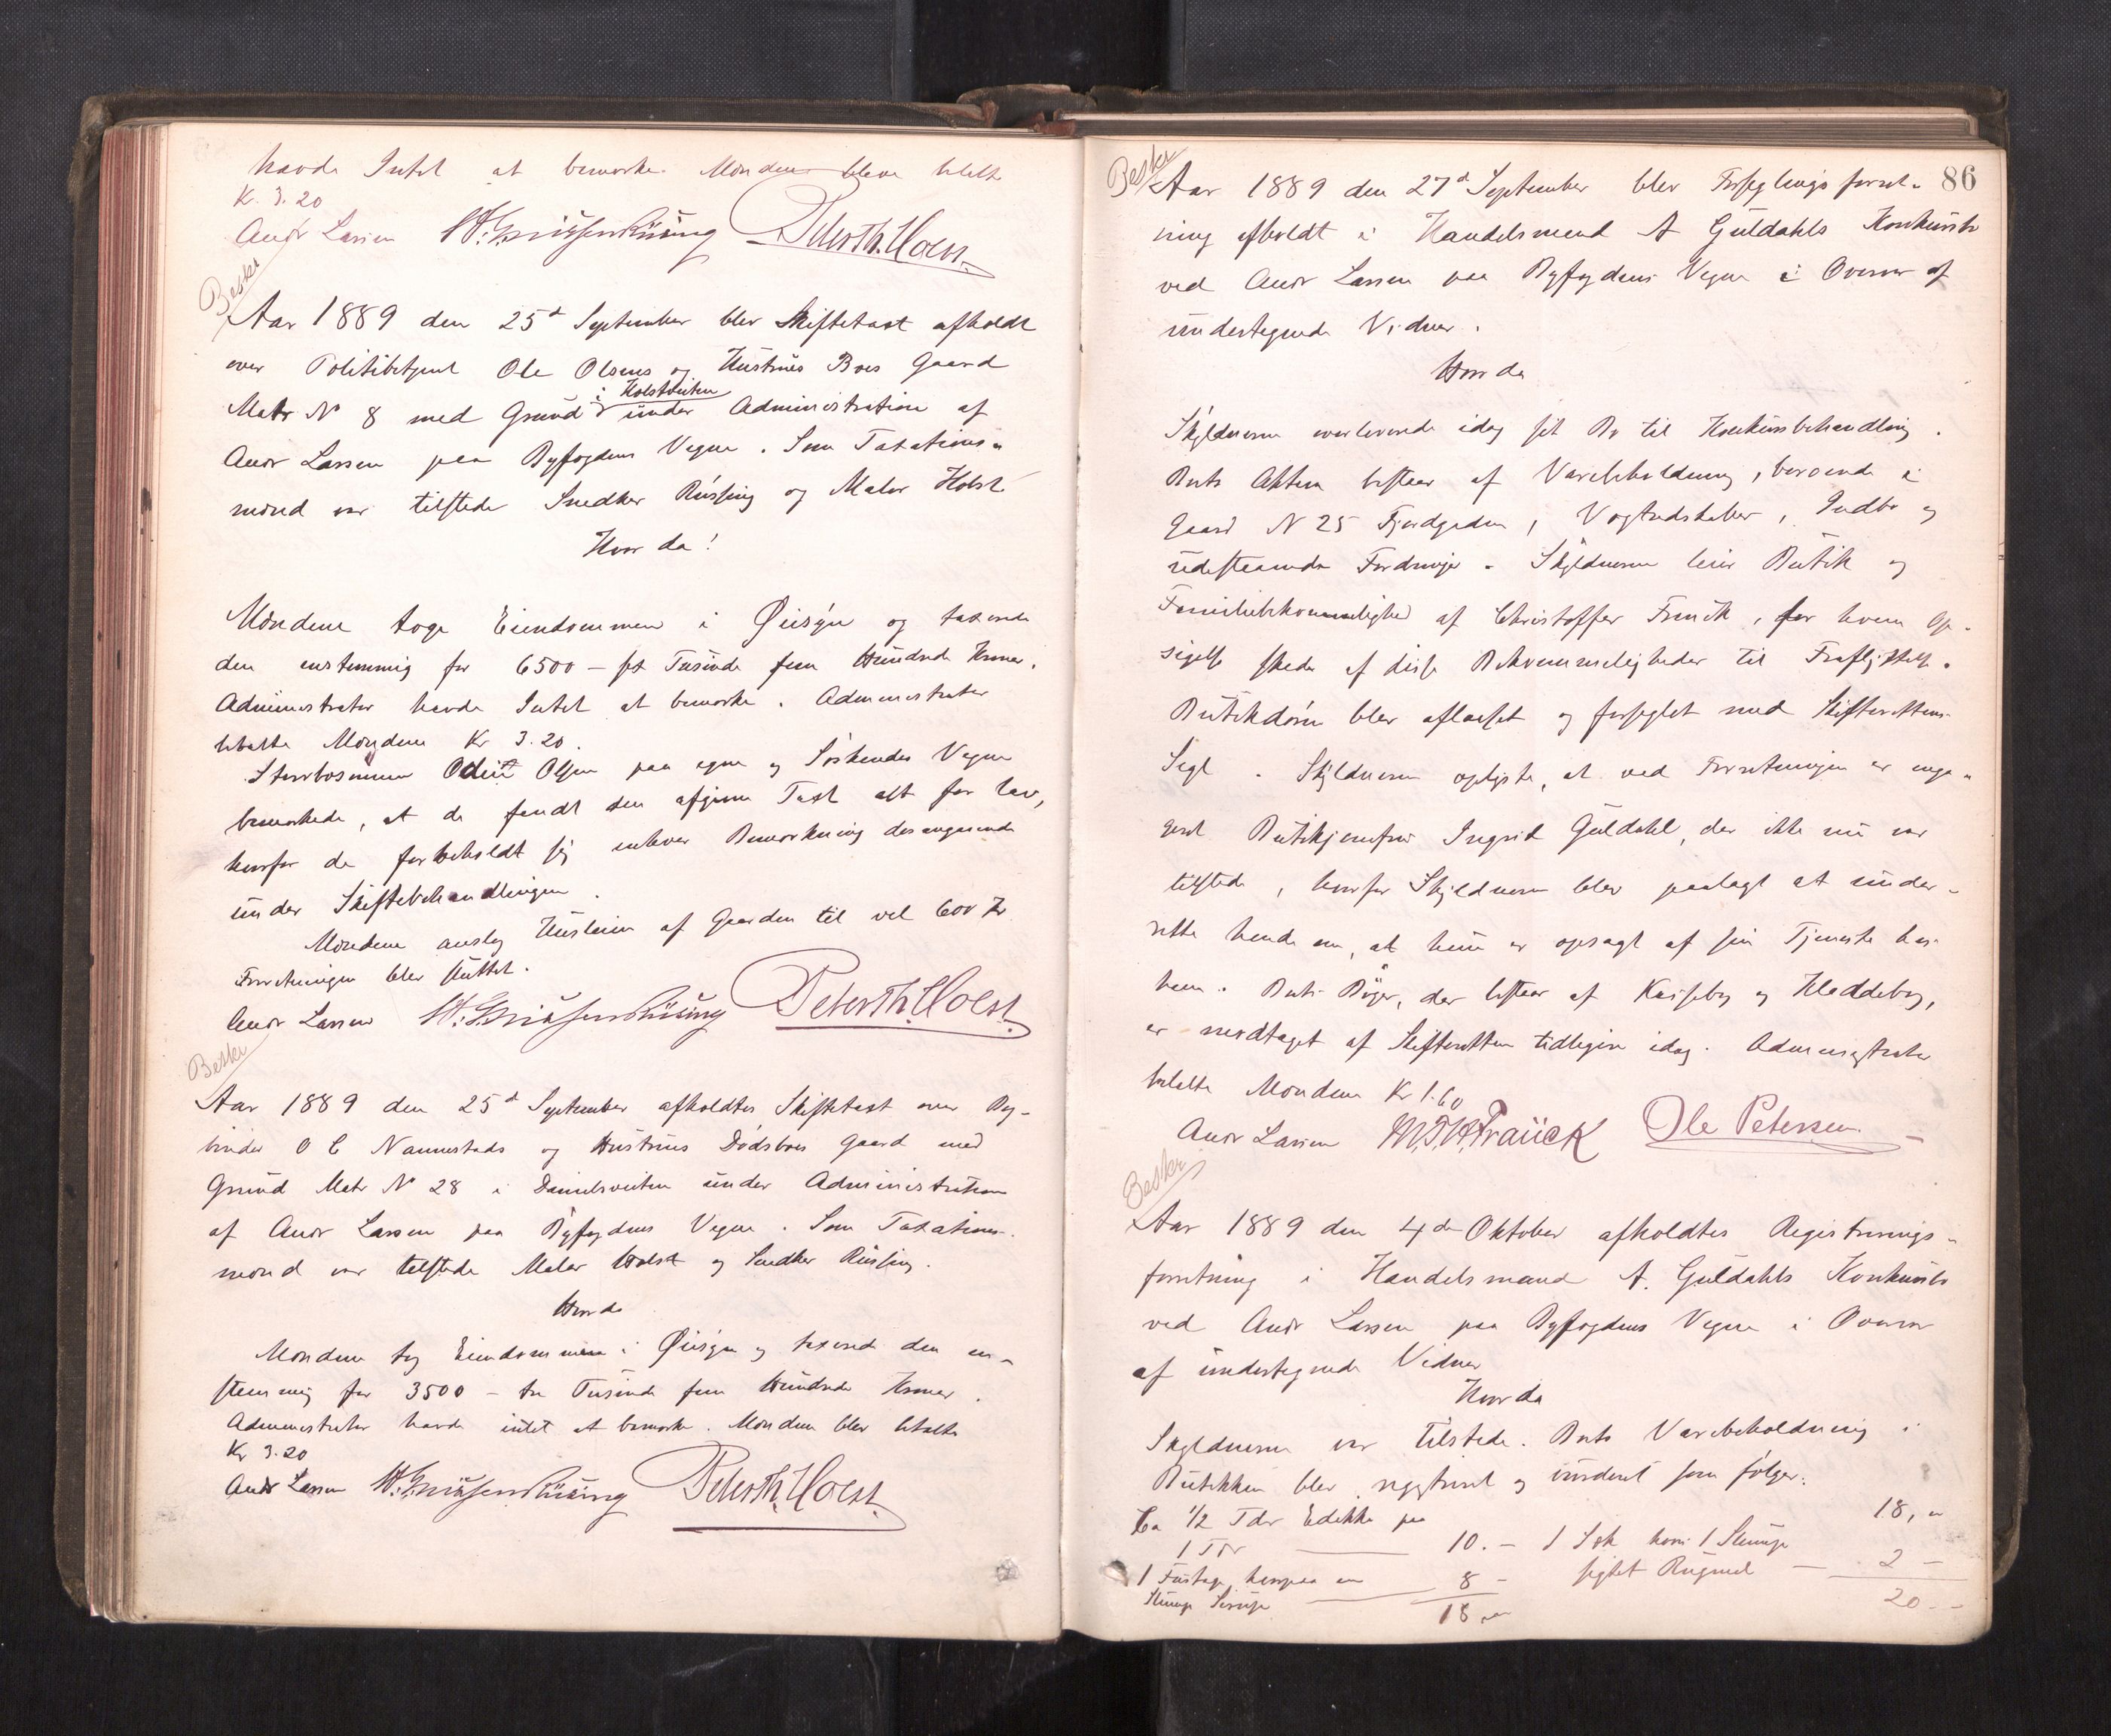 havde Intet at bemærke. Mændene bleve betalt
Kr. 3.20
Andr Larsen Peter Th. Holst.
Beskr
Aar 1889 den 25d September blev Skiftetaxt afholdt
over Politibetjent Ole Olsens og Hustrues Boes Gaard
i Holstveiten
Matr No 8 med Grund under Administration af
Andr Larsen paa Byfogdens Vegne. Som Taxations-
mænd var tilstede Snedker Rüssing og Maler Holst
Hvor da!
Mændene toge Eiendommen i Øiesyn og taxerede
den enstemmig for 6500 – sex Tusinde fem Hundrede Kroner.
Administrator havde Intet at bemærke. Administrator
betalte Mændene Kr 3.20.
Stervbosmanen Olsen paa egne og Søskendes Vegne
bemærkede, at de fandt den afgivne Taxt alt for lav,
hvorfor de forbeholdt sig enhver Bemærkning desangaaende
under Skiftebehandlingen.
Mændene anslog Husleien af Gaarden til vel 600 Kr
Forretningen blev sluttet.
Andr Larsen Peter Th. Holst.
Beskr
Aar 1889 den 25d September afholdtes Skiftetaxt over Bog-
binder O C Nannestads og Hustrues Dødsboes Gaard med
Grund Matr No 28 i Danielsveiten under Administration
af Andr Larsen paa Byfogdens Vegne. Som Taxations-
mænd var tilstede Maler Holst og Snedker Rüssing.
Hvor da
Mændene tog Eiendommen i Øiesyn og taxerede den en-
stemmig for 3500 – tre Tusinde fem Hundrede Kroner.
Administrator havde intet at bemærke. Mændene blev betalte
Kr 3.20
Andr Larsen Peter Th. Holst.
86
Beskr
Aar 1889 den 27d September blev Forseglingsforret-
ning afholdt i Handelsmand A Guldahls Konkursbo
ved Andr Larsen paa Byfogdens Vegne i Overvær af
undertegnede Vidner.
Hvor da
Skyldneren overleverede idag sit Bo til Konkursbehandling.
Boets Aktiva bestaar af Varebeholdning, beroende i
Gaard N 25 Fjordgaden, Vogtredskaber, Indbo og
udestaaende Fordringer. Skyldneren leier Butik og
Familiebekvemmelighed af Christoffer Franck, for hvem Op-
sigelse skede af disse Bekvemmeligheder til Fraflyttelse.
Butikdøren blev aflaaset og forseglet med Skifterettens
Segl. Skyldneren oplyste, at ved Forretningen er enga-
geret Butikjomfru Ingrid Guldahl, der ikke nu var
tilstede, hvorfor Skyldneren blev paalagt at under-
rette hende om, at hun er opsagt af sin Tjeneste hos
ham. Boets Bøger, der bestaar af Kassebog og Kladdebog,
er modtaget af Skifteretten tidligere idag. Administrator
betalte Mændene Kr 1.60
Andr Larsen Franck Ole Petersen.
Beskr
Aar 1889 den 4de Oktober afholdtes Registrerings-
forretning i Handelsmand A. Guldahls Konkursbo
ved Andr Larsen paa Byfogdens Vegne i Overvær
af undertegnede Vidner
Hvor da
Skyldneren var tilstede. Boets Varebeholdning i
Butikken blev registreret og vurderet som følger:
Ca 1/2 Tdr Edikke paa
1 Tdr 10. –
1 Fustage, hvorpaa en 8 –
Slump Sirup
18
18, –
1 Sæk hvori 1 Slump
sigtet Rugmel 2 –
20 –